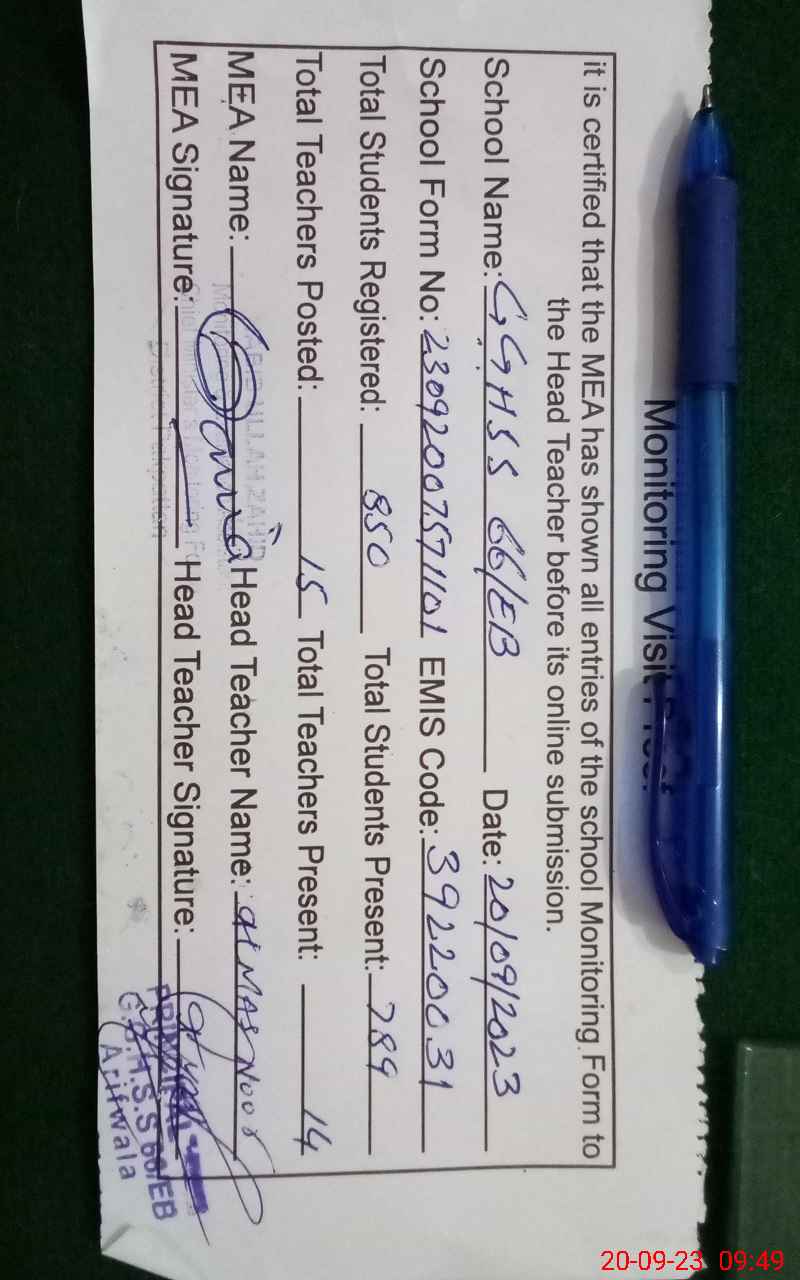 Monitoring Visit
it is certified that the MEA has shown all entries of the school Monitoring Form to
the Head Teacher before its online submission.
School Name: GGHSS 66/EB Date: 20/09/2023
School Form No: 23092007571101 EMIS Code: 39220031
Total Students Registered: 850 Total Students Present: 789
Total Teachers Posted: 15 Total Teachers Present: 14
MEA Name: Head Teacher Name: almas Noor
MEA Signature: Head Teacher Signature:
PRINCIPAL
G.G.H.S.S 66/EB
Arifwala
20-09-23 09:49